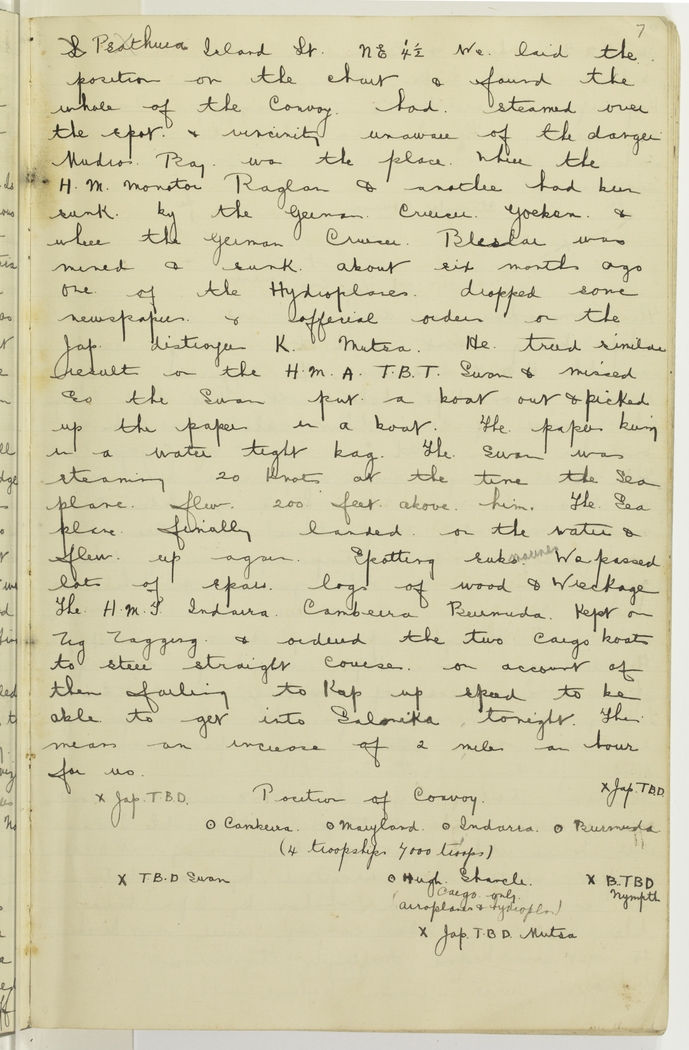 7
Psathura Island Lt. NE 4½ We laid the
position on the chart & found the
whole of the Convoy. had. steamed over
the spot. & vincinity unaware of the danger
Mudros. Bay. was the place. where the
H.M. monotor Raglan & another had been
sunk. by the German. Cruiser. Goeben. &
where the German Cruiser. Breslau was
mined & sunk. about six months ago
One. of the Hydroplanes. dropped some
newspapers. & offerial orders on the
Jap. distroyer K. Mutsa. He. tried similar
result on the H.M.A. T.B.T. Swan & missed
So the Swan put a boat out & picked
up the paper in a boat. The. papers being
in a water tight bag. The. Swan was
steaming 20 Knots at the time the Sea
plane. flew. 200 feet above. him. The. Sea
plane. finally landed. on the water &
flew. up again. Spotting subs. We passed
lots of spars. logs of wood & Wreckage
The. H.M.T. Indarra. Canberra Burmuda. Kept on
Zig Zagging. & ordered the two Cargo boats
to steer straight courses. on account of
them failing to Keep up speed to be
able to get into Salonika tonight. This
means an increase of 2 miles an hour
for us.
x Jap. T.B.D. Position of Convoy. x Jap. T.B.D.
o Canberra. o Maryland. o Indarra. o Burmuda
(4 troopships 7000 troops)
x T.B.D Swan o Hugh. x B.TBD
Cargo only. Nymph
aeroplanes & hydroplanes)
x Jap. T.B.D. Mutsa